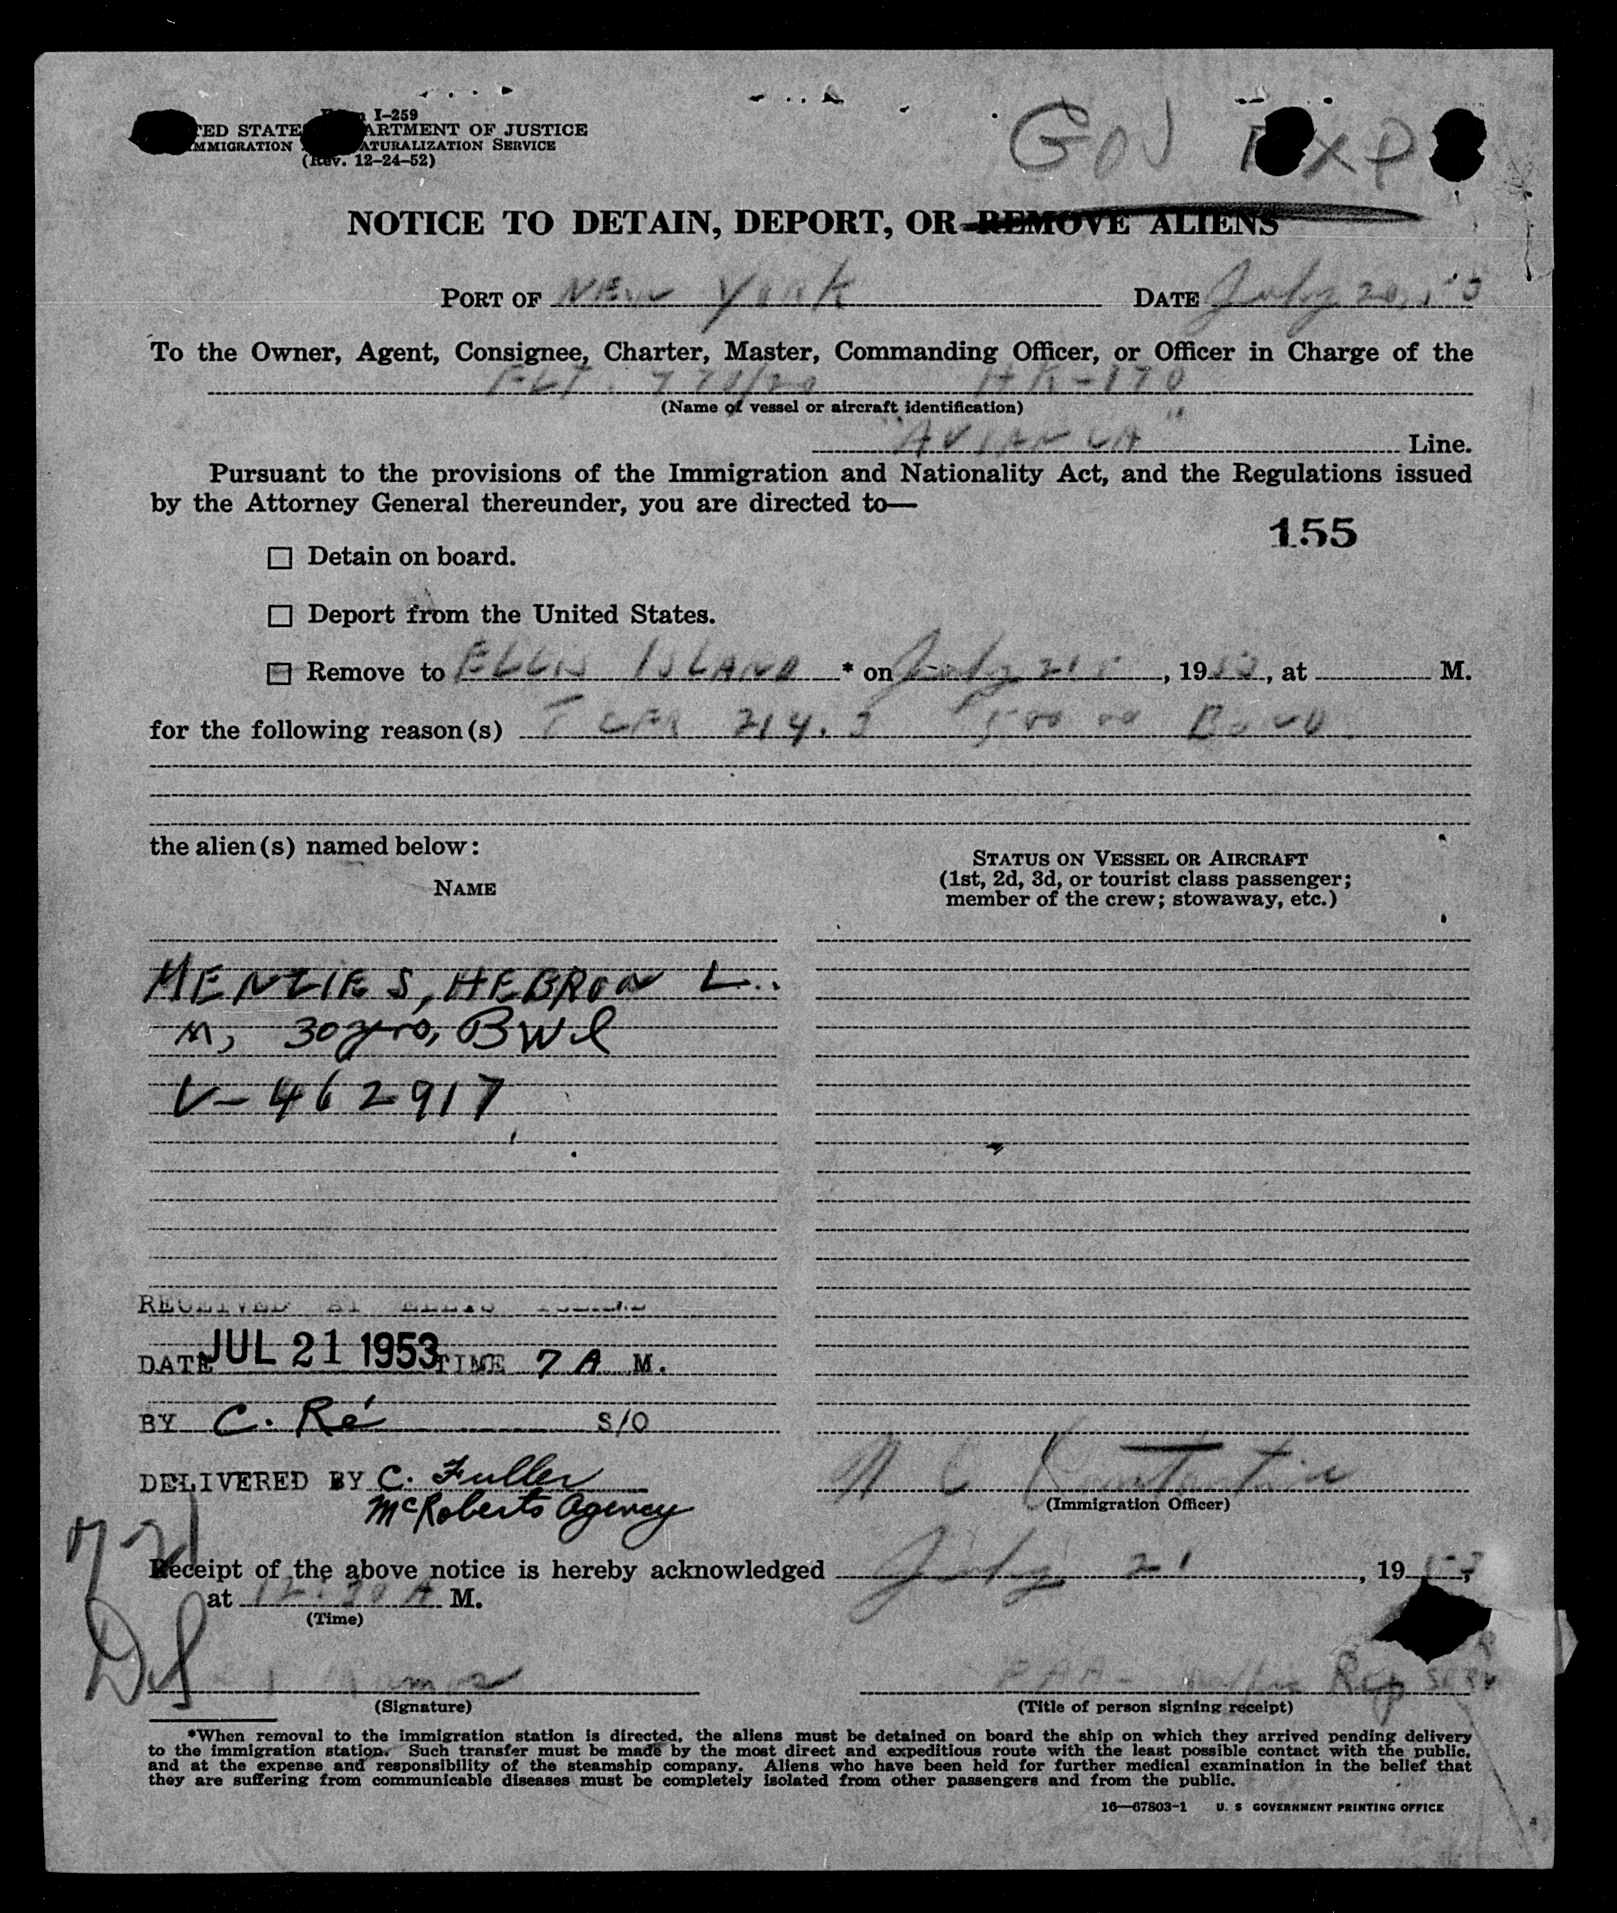 I-259
TED STATE ARTMENT OF JUSTICE
IMMIGRATION NATURALIZATION SERVICE
(Rev. 12-24-52)
GOV EXP
NOTICE TO DETAIN, DEPORT, OR REMOVE ALIENS
PORT OF NEW YORK DATE July 20, 53
To the Owner, Agent, Consignee, Charter, Master, Commanding Officer, or Officer in Charge of the
FLT. 770/20 HK-170
(Name of vessel or aircraft identification)
"AVIANCA" Line.
Pursuant to the provisions of the Immigration and Nationality Act, and the Regulations issued
by the Attorney General thereunder, you are directed to—
155
☐ Detain on board.
☐ Deport from the United States.
☐ Remove to ELLIS ISLAND * on July 21, 1953, at M.
for the following reason(s) CFR 214.3 500 00 BOND
the alien(s) named below:
NAME
STATUS ON VESSEL OR AIRCRAFT
(1st, 2d, 3d, or tourist class passenger;
member of the crew; stowaway, etc.)
MENZIES, HEBRON L.
M, 30 yrs, BWI
V-462917
RECEIVED AT ELLIS ISLAND
DATE JUL 21 1953 TIME 7 A M.
BY C. Ré S/O
DELIVERED BY C. Fuller
McRoberts Agency
(Immigration Officer)
7/21
Receipt of the above notice is hereby acknowledged July 21, 1953,
at 12:30 A M.
(Time)
DS
Ramos
Rep
(Signature)
(Title of person signing receipt)
*When removal to the immigration station is directed, the aliens must be detained on board the ship on which they arrived pending delivery
to the immigration station. Such transfer must be made by the most direct and expeditious route with the least possible contact with the public,
and at the expense and responsibility of the steamship company. Aliens who have been held for further medical examination in the belief that
they are suffering from communicable diseases must be completely isolated from other passengers and from the public.
16—67803-1 U. S GOVERNMENT PRINTING OFFICE